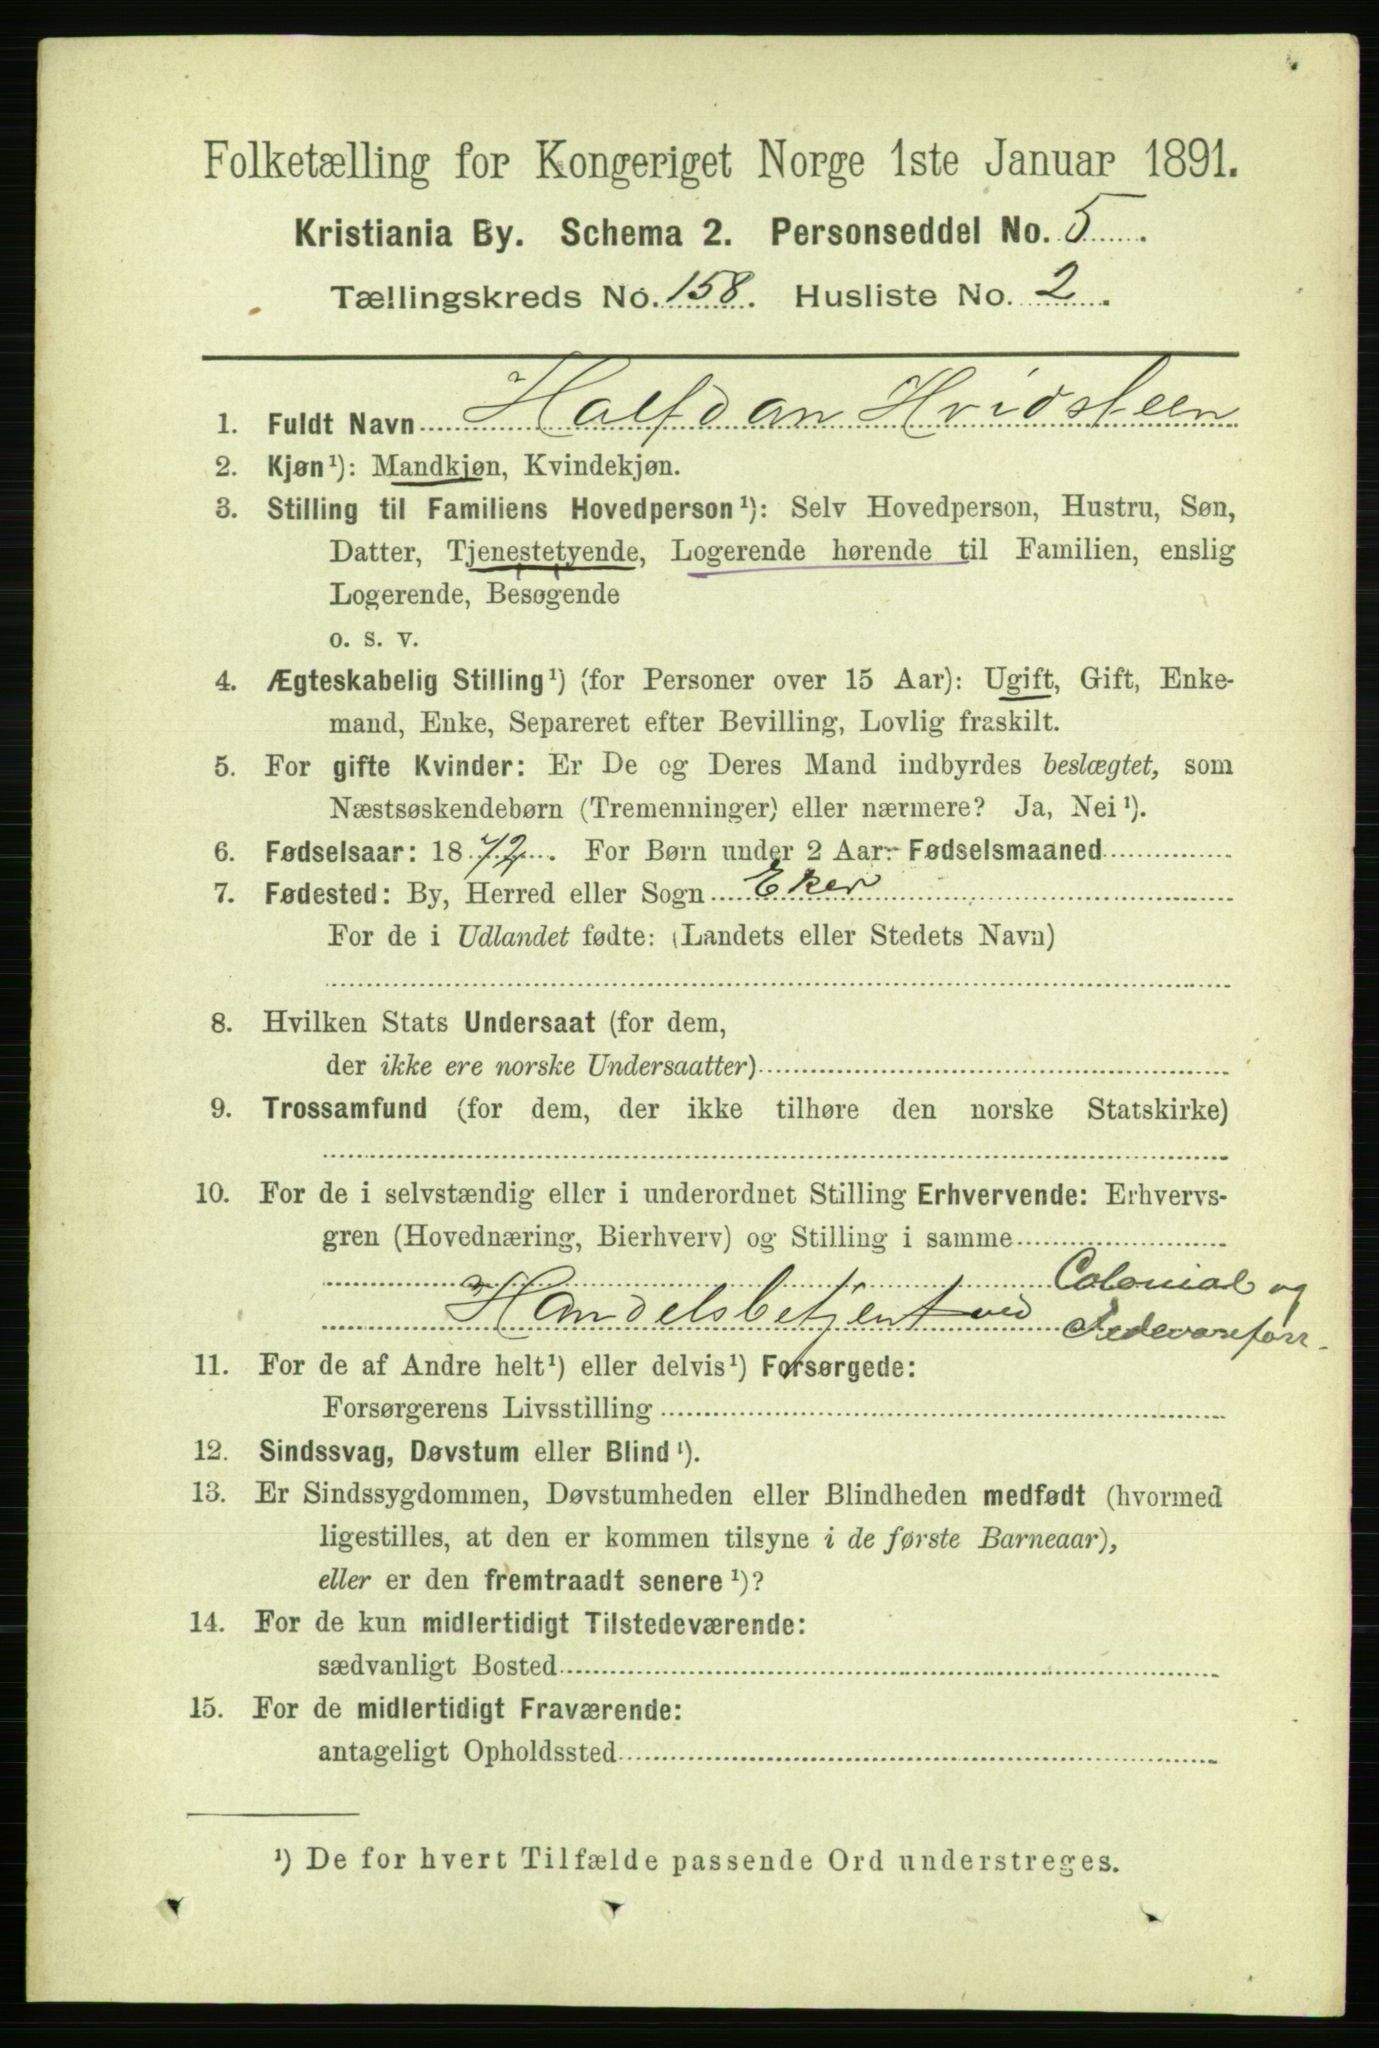 Folketælling for Kongeriget Norge 1ste Januar 1891.
Kristiania By. Schema 2. Personseddel No. 5.
Tællingskreds No. 158. Husliste No. 2.
1. Fuldt Navn Halfdan Hvidsteen
2. Kjøn¹): Mandkjøn, Kvindekjøn.
3. Stilling til Familiens Hovedperson¹): Selv Hovedperson, Hustru, Søn,
Datter, Tjenestetyende, Logerende hørende til Familien, enslig
Logerende, Besøgende
o. s. v.
4. Ægteskabelig Stilling¹) (for Personer over 15 Aar): Ugift, Gift, Enke-
mand, Enke, Separeret efter Bevilling, Lovlig fraskilt.
5. For gifte Kvinder: Er De og Deres Mand indbyrdes beslægtet, som
Næstsøskendebørn (Tremenninger) eller nærmere? Ja, Nei¹).
6. Fødselsaar: 1872. For Børn under 2 Aar: Fødselsmaaned
7. Fødested: By, Herred eller Sogn Eker
For de i Udlandet fødte: (Landets eller Stedets Navn)
8. Hvilken Stats Undersaat (for dem,
der ikke ere norske Undersaatter)
9. Trossamfund (for dem, der ikke tilhøre den norske Statskirke)
10. For de i selvstændig eller i underordnet Stilling Erhvervende: Erhvervs-
gren (Hovednæring, Bierhverv) og Stilling i samme
Colonial og
Handelsbetjent ved Fedevareforr.
11. For de af Andre helt¹) eller delvis¹) Forsørgede:
Forsørgerens Livsstilling
12. Sindssvag, Døvstum eller Blind¹).
13. Er Sindssygdommen, Døvstumheden eller Blindheden medfødt (hvormed
ligestilles, at den er kommen tilsyne i de første Barneaar),
eller er den fremtraadt senere¹)?
14. For de kun midlertidigt Tilstedeværende:
sædvanligt Bosted
15. For de midlertidigt Fraværende:
antageligt Opholdssted
¹) De for hvert Tilfælde passende Ord understreges.